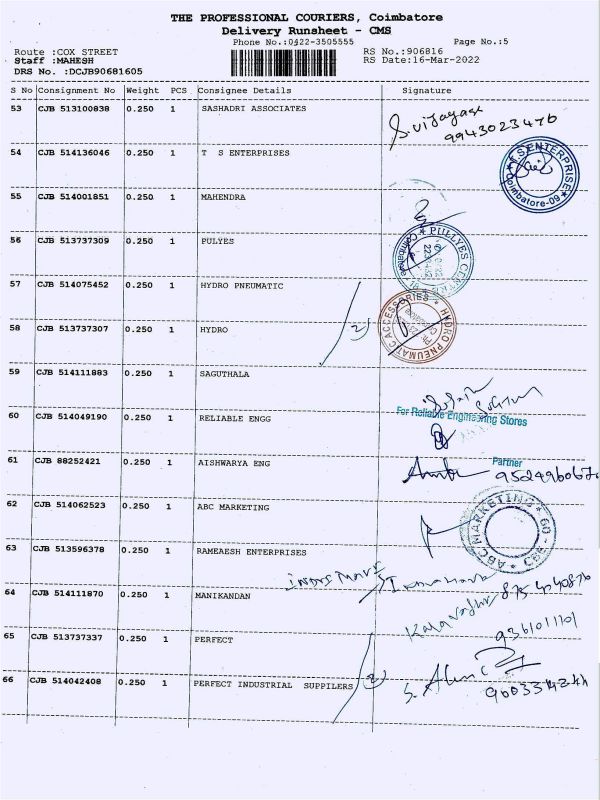 THE PROFESSIONAL COURIERS, Coimbatore
Delivery Runsheet - CMS
Phone No.:0422-3505555 Page No.:5
Route :COX STREET RS No.:906816
Staff :MAHESH RS Date:16-Mar-2022
DRS No. :DCJB90681605
S No Consignment No Weight PCS Consignee Details Signature
53 CJB 513100838 0.250 1 SASHADRI ASSOCIATES
9943023476
54 CJB 514136046 0.250 1 T S ENTERPRISES
T.S ENTERPRISE Coimbatore-09
55 CJB 514001851 0.250 1 MAHENDRA
56 CJB 513737309 0.250 1 PULYES
PULLYES CENTRE Coimbatore
57 CJB 514075452 0.250 1 HYDRO PNEUMATIC
HYDRO PNEUMATIC ACCESSORIES
58 CJB 513737307 0.250 1 HYDRO
2
59 CJB 514111883 0.250 1 SAGUTHALA
60 CJB 514049190 0.250 1 RELIABLE ENGG
For Reliable Engineering Stores
Partner
61 CJB 88252421 0.250 1 AISHWARYA ENG
62 CJB 514062523 0.250 1 ABC MARKETING
ABC MARKETING
63 CJB 513596378 0.250 1 RAMEAESH ENTERPRISES
64 CJB 514111870 0.250 1 MANIKANDAN
65 CJB 513737337 0.250 1 PERFECT
66 CJB 514042408 0.250 1 PERFECT INDUSTRIAL SUPPILERS
2